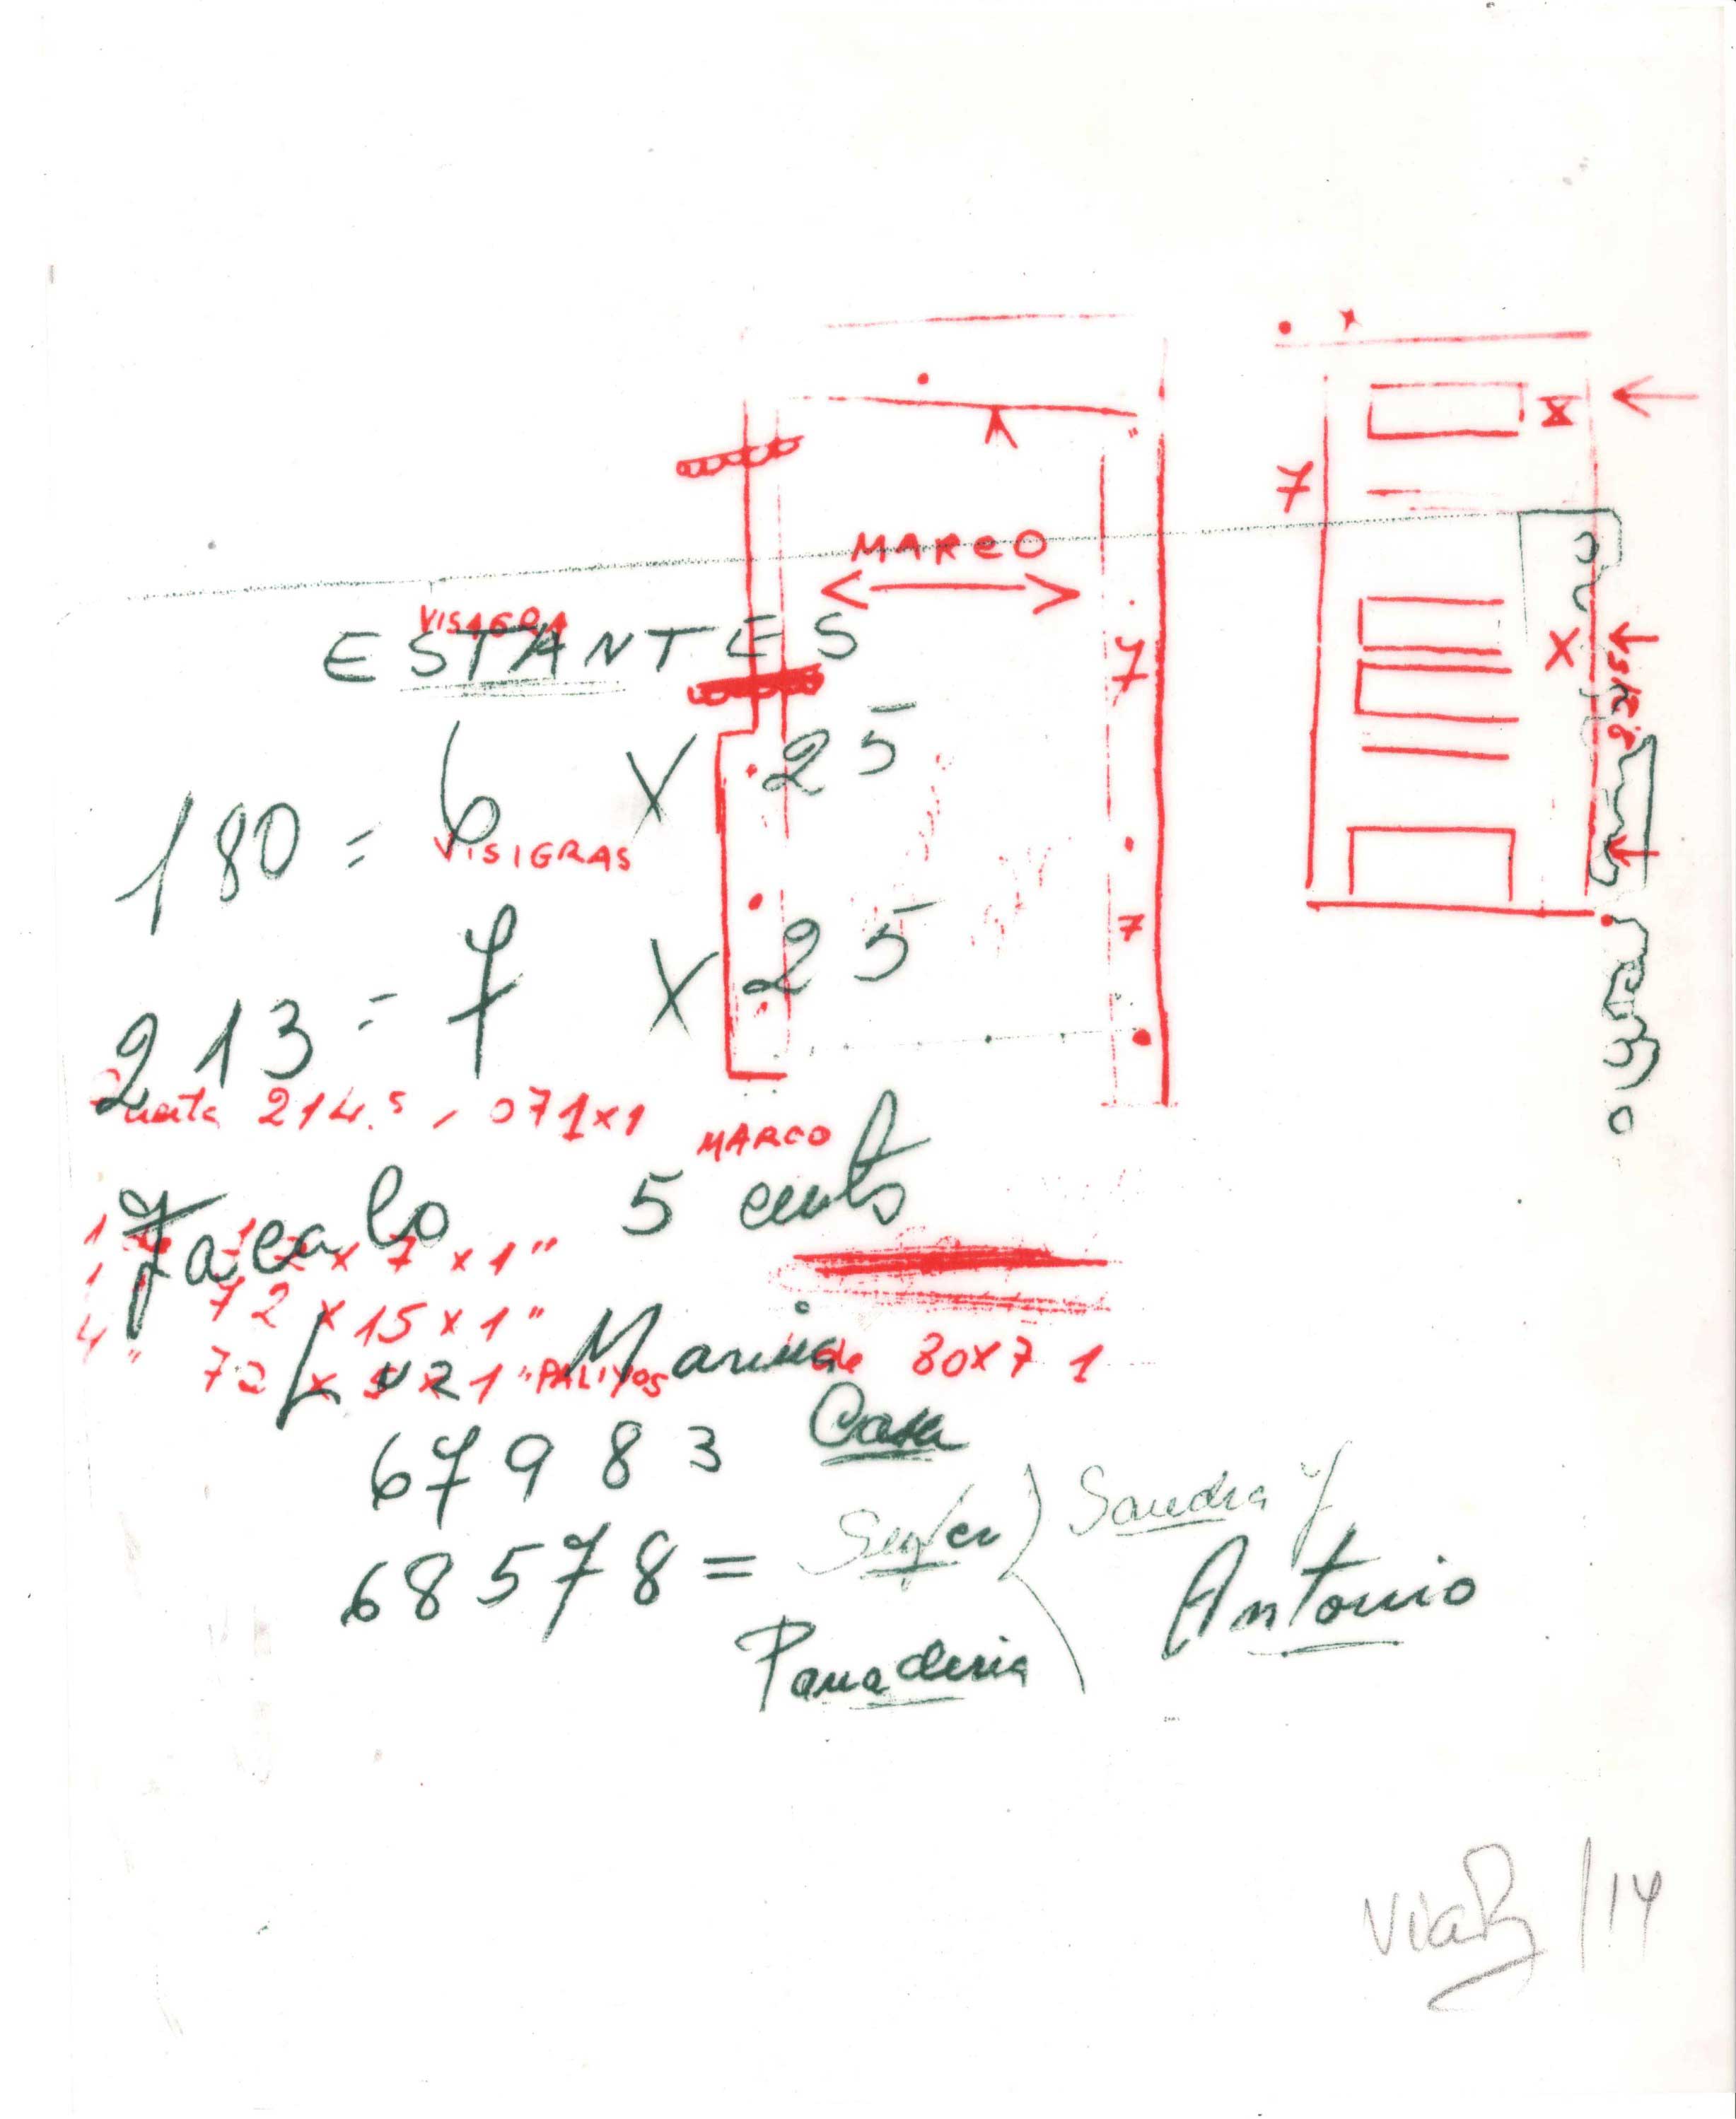 MARCO
7
7
7
X
X
VISAGRA
ESTANTES
180 = 6 X 25
VISIGRAS
213 = 7 X 25
Puerta 214.5, 071x1
MARCO
Zacalo 5 cents
7 x 1"
72 x 15 x 1"
4" 72 x 5 x 1" PALIYOS de 80x7 1
Luz Marina
67983 Casa
68578 = Sandra y
Panaderia Antonio
/14